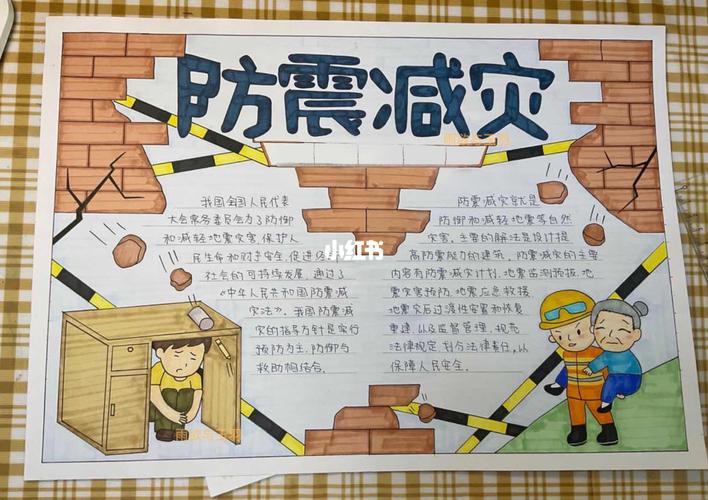 防震减灾
我国全国人民代表
大会常务委员会为了防御
和减轻地震灾害,保护人
民生命和财产安全,促进经济
社会的可持续发展,通过了
《中华人民共和国防震减
灾法》。我国防震减
灾的指导方针是实行
预防为主,防御与
救助相结合.
防震减灾就是
防御和减轻地震等自然
灾害.主要的解法是设计提
高防震能力的建筑.防震减灾的主要
内容有防震减灾计划.地震监测预报.地
震灾害预防.地震应急救援.
地震灾后过渡性安置和恢复
重建.以及监督管理.规范
法律规定.划分法律责任.从
保障人民安全.
小红书